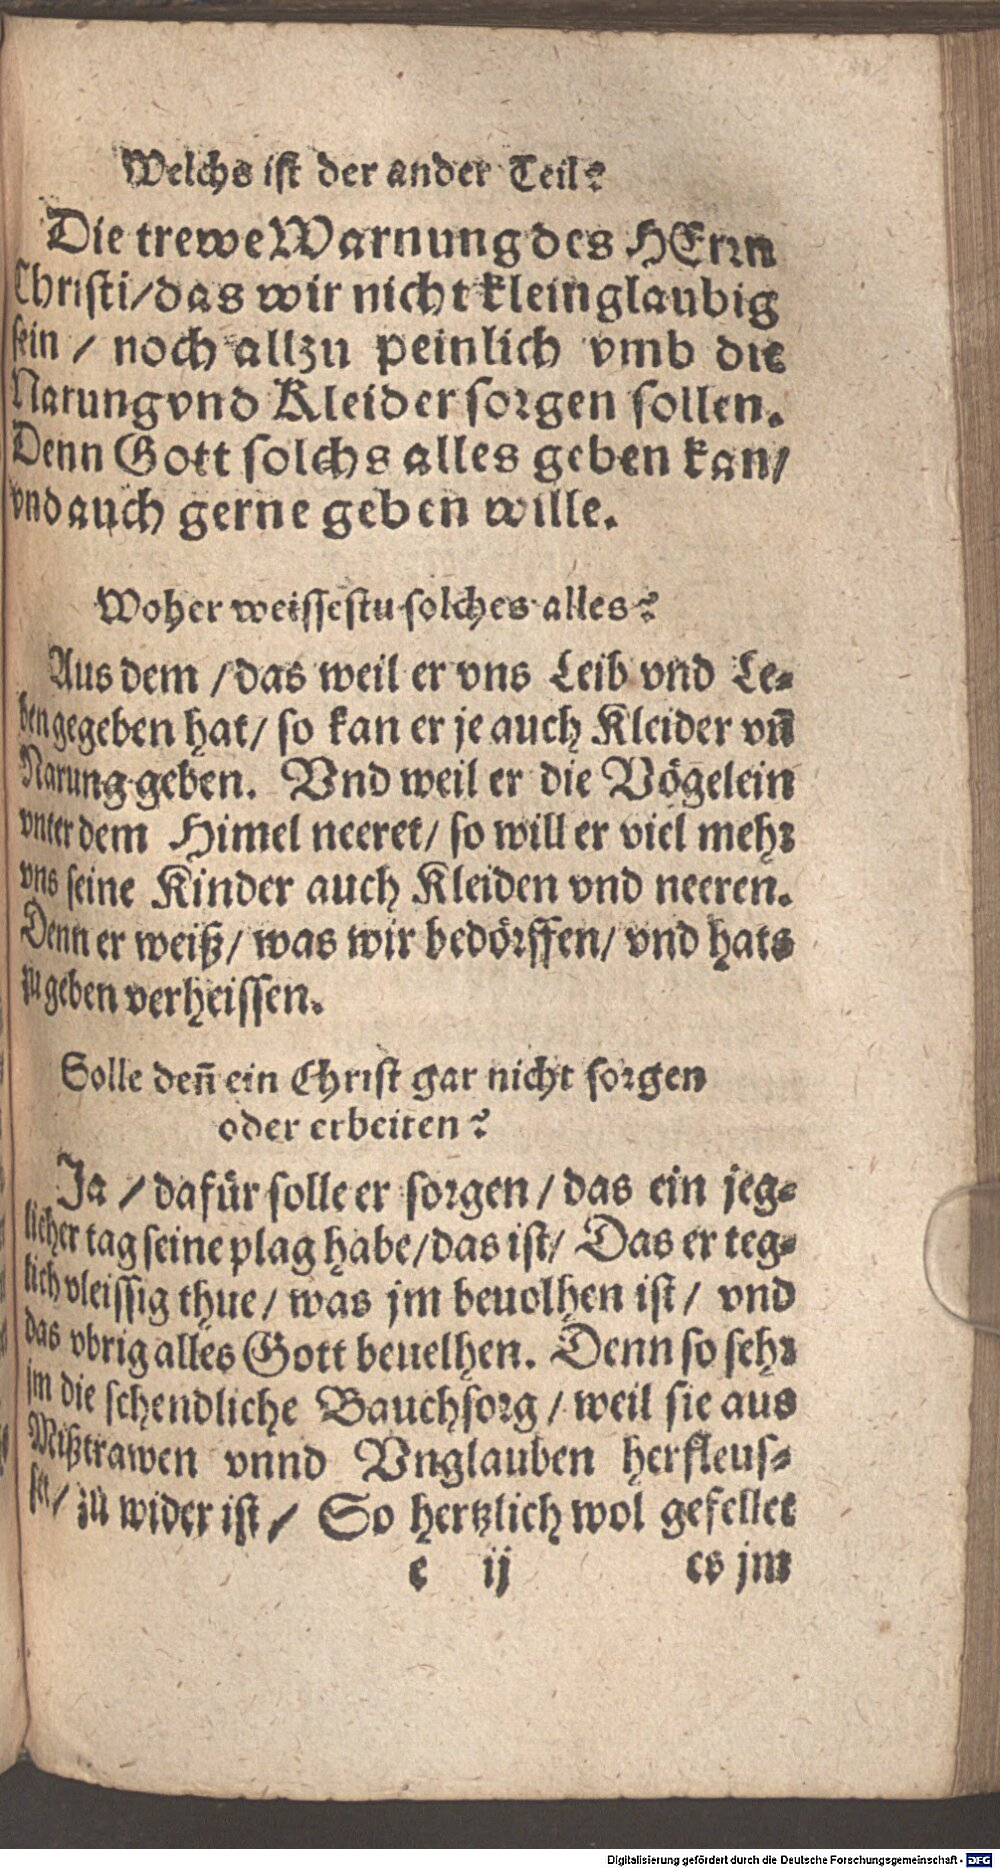 Welchs ist der ander Teil?
Die trewe Warnung des HErrn
Christi/das wir nicht kleinglaubig
sein / noch allzu peinlich vmb die
Narung vnd Kleider sorgen sollen.
Denn Gott solchs alles geben kan/
vnd auch gerne geben wille.
Woher weissestu solches alles?
Aus dem /das weil er vns Leib vnd Le-
ben gegeben hat/ so kan er je auch Kleider vñ
Narung geben. Vnd weil er die Vögelein
vnter dem Himel neeret/ so will er viel mehr
vns seine Kinder auch Kleiden vnd neeren.
Denn er weiß/ was wir bedörffen/ vnd hats
zu geben verheissen.
Solle deñ ein Christ gar nicht sorgen
oder erbeiten?
Ja / dafür solle er sorgen / das ein jeg-
licher tag seine plag habe/das ist/ Das er teg-
lich vleissig thue/ was jm beuolhen ist/ vnd
das vbrig alles Gott beuelhen. Denn so sehr
jm die schendliche Bauchsorg / weil sie aus
Mißtrawen vnnd Vnglauben herfleus-
set/ zu wider ist/ So hertzlich wol gefellet
e ij es jm
Digitalisierung gefördert durch die Deutsche Forschungsgemeinschaft - DFG